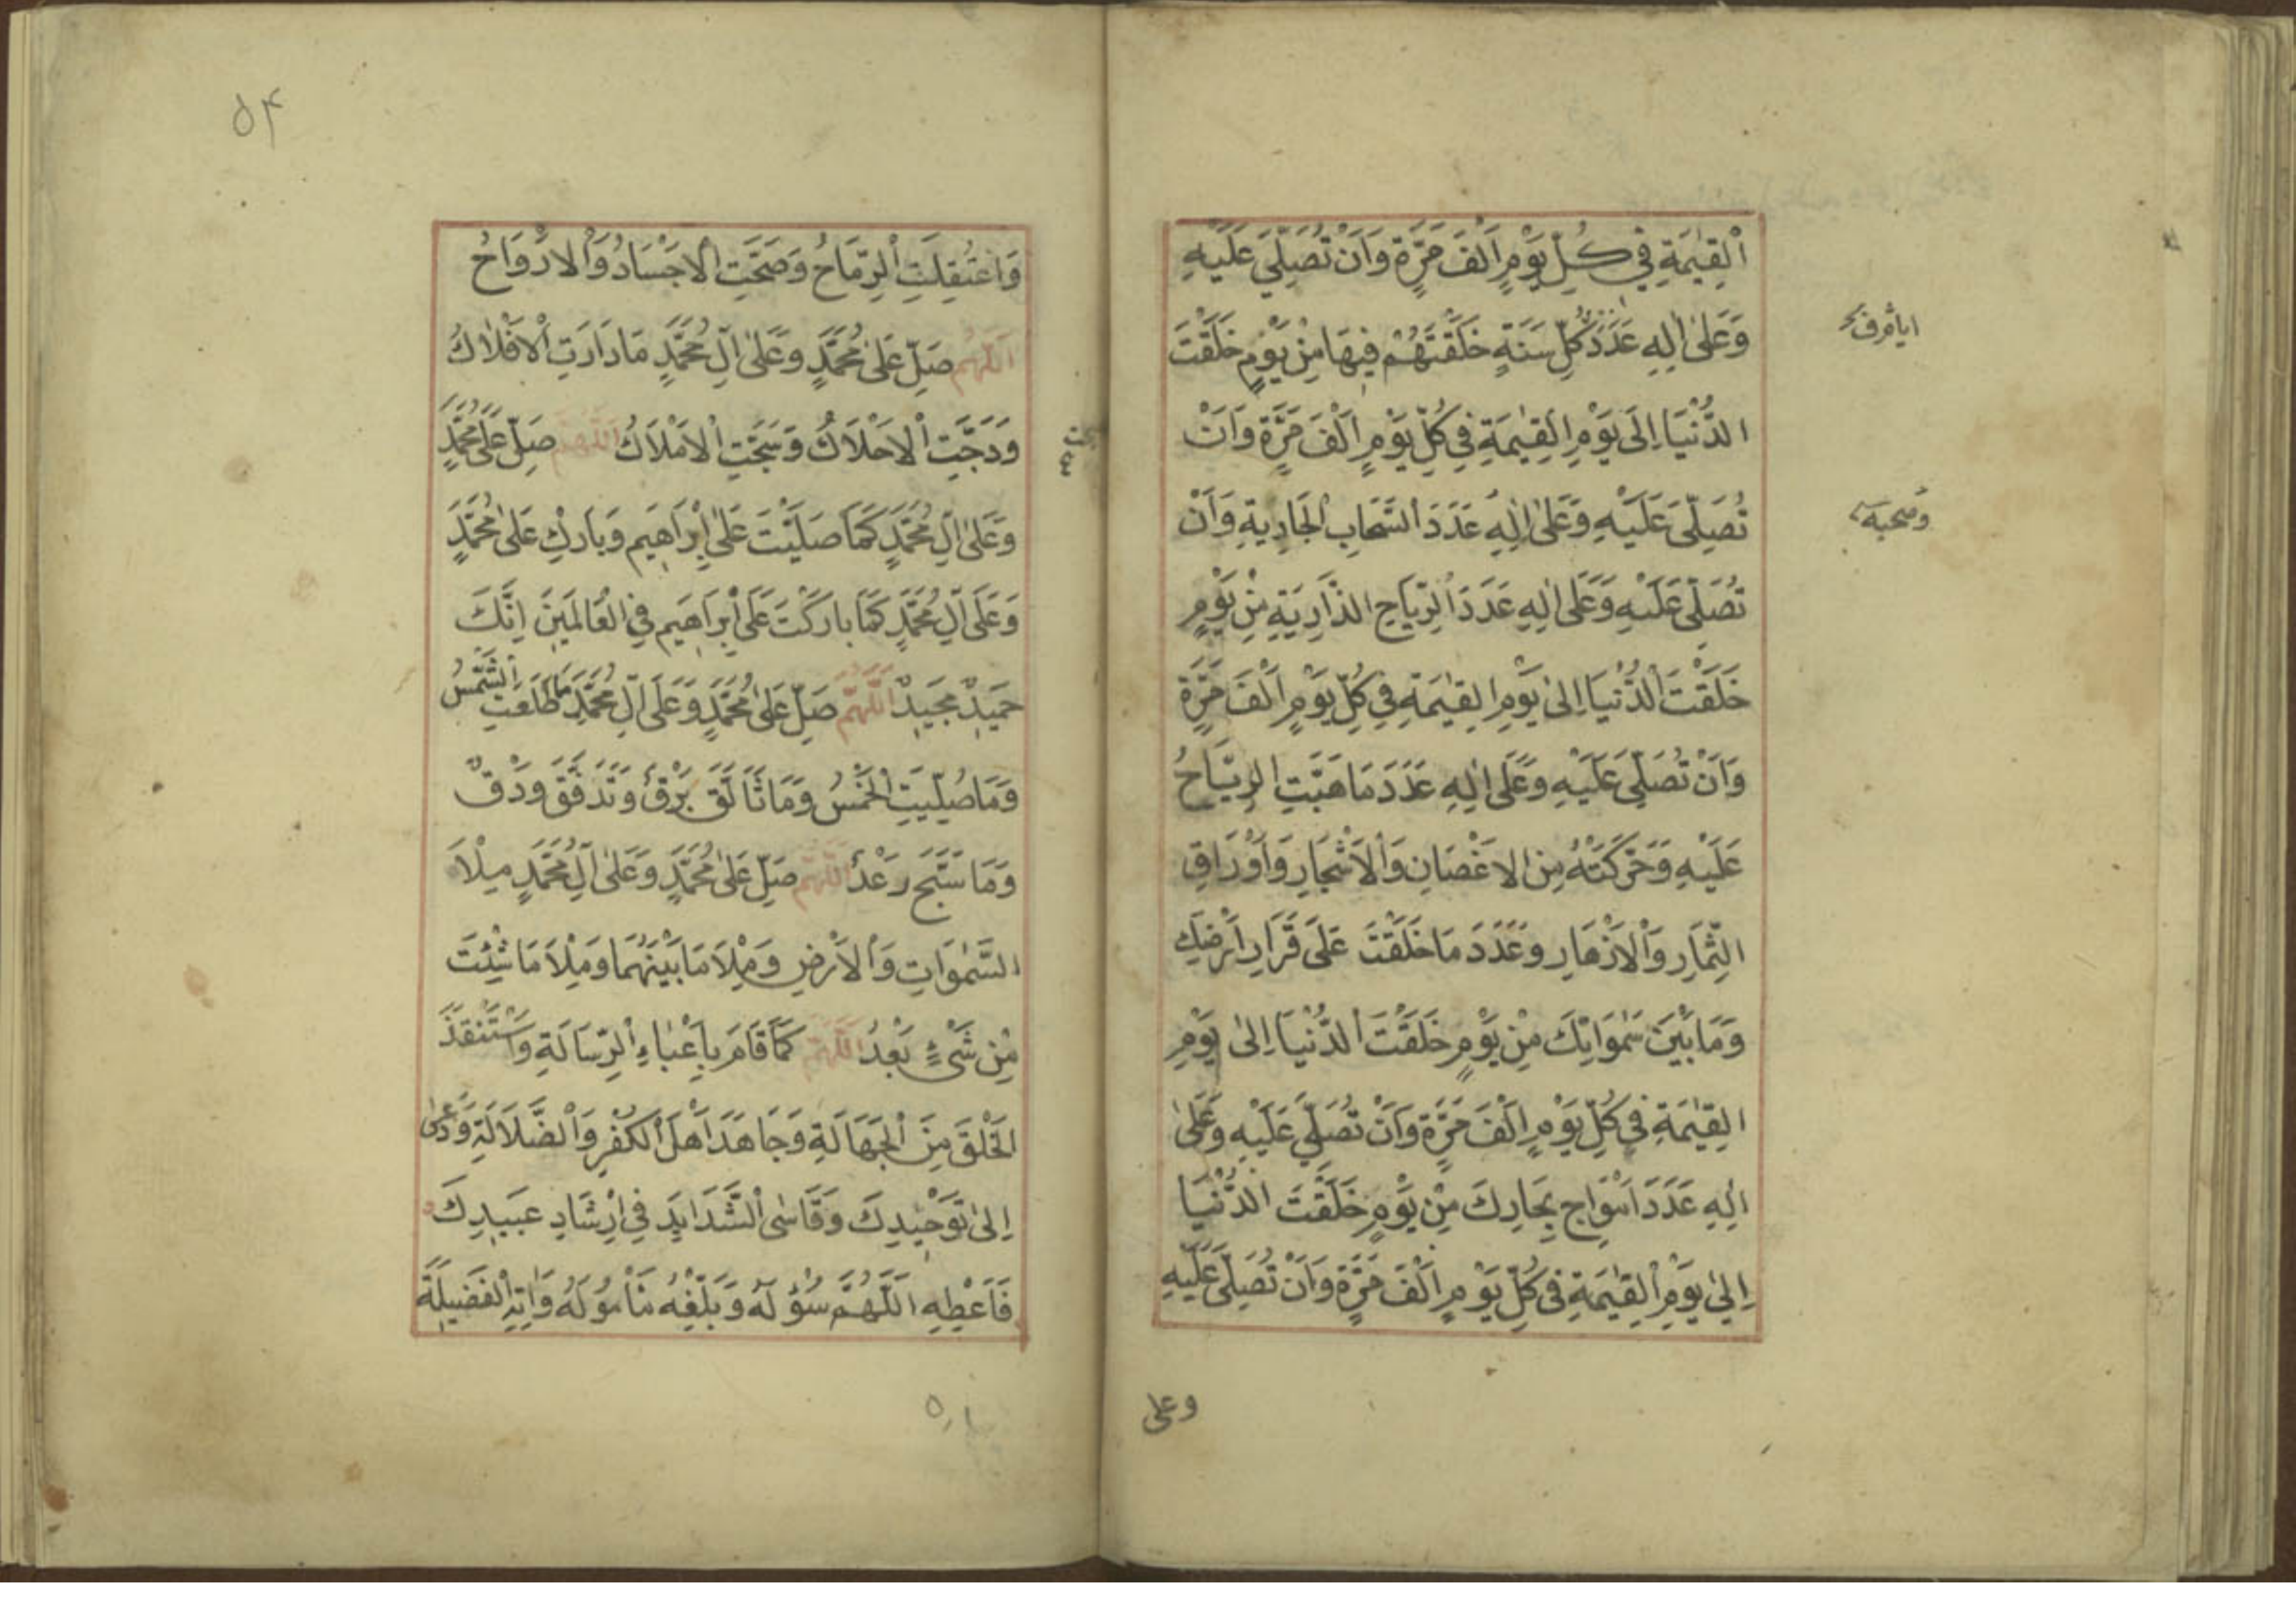 اَلْقِيٰمَةِ فِي كُلِّ يَوْمٍ اَلْفَ مَرَّةٍ وَاَنْ تُصَلِّيَ عَلَيْهِ
وَعَلٰى اٰلِهِ عَدَدَ كُلِّ سَنَةٍ خَلَقْتَهُمْ فِيهَا مِنْ يَوْمٍ خَلَقْتَ
الدُّنْيَا اِلَى يَوْمِ الْقِيٰمَةِ فِي كُلِّ يَوْمٍ اَلْفَ مَرَّةٍ وَاَنْ
تُصَلِّىَ عَلَيْهِ وَعَلٰى اٰلِهِ عَدَدَ السَّحَابِ الْجَارِيةِ وَاَنْ
وصحبه
تُصَلِّىَ عَلَيْهِ وَعَلٰى اٰلِهِ عَدَدَ الرِّيَاحِ الذَّارِيَةِ مِنْ يَوْمٍ
خَلَقْتَ الدُّنْيَا اِلىٰ يَوْمِ الْقِيٰمَةِ فِي كُلِّ يَوْمٍ اَلْفَ مَرَّةٍ
وَاَنْ تُصَلِّىَ عَلَيْهِ وَعَلٰى اٰلِهِ عَدَدَ مَا هَبَّتِ الرِّيَاحُ
عَلَيْهِ وَحَرَّكَتْهُ مِنَ الاَغْصَانِ وَالْاَشْجَارِ وَاَوْرَاقِ
الثِّمَارِ وَالْاَزْهَارِ وَعَدَدَ مَا خَلَقْتَ عَلَى قَرَارِ اَرْضِكَ
وَمَا بَيْنَ سَمٰوَاتِكَ مِنْ يَوْمٍ خَلَقْتَ الدُّنْيَا اِلىٰ يَوْمِ
الْقِيٰمَةِ فِي كُلِّ يَوْمٍ اَلْفَ مَرَّةٍ وَاَنْ تُصَلِّيَ عَلَيْهِ وَعَلىٰ
اٰلِهِ عَدَدَ اَمْوَاجِ بِحَارِكَ مِنْ يَوْمٍ خَلَقْتَ الدُّنْيَا
اِلىٰ يَوْمِ الْقِيٰمَةِ فِى كُلِّ يَوْمٍ اَلْفَ مَرَّةٍ وَاَنْ تُصَلِّىَ عَلَيْهِ
وعلى
۵۴
وَاعْتُقِلَتِ الرِّمَاحُ وَصَحَّتِ الْاَجْسَادُ وَالْاَرْوَاحُ
اَللّٰهُمَّ صَلِّ عَلىٰ مُحَمَّدٍ وَعَلىٰ اٰلِ مُحَمَّدٍ مَا دَارَتِ الْاَفْلَاكُ
وَدَجَتِ الْاَحْلَاكُ وَسَبَّحَتِ الْاَمْلَاكُ اَللّٰهُمَّ صَلِّ عَلىٰ مُحَمَّدٍ
وَعَلىٰ اٰلِ مُحَمَّدٍ كَمَا صَلَّيْتَ عَلىٰ اِبْرَاهِيمَ وَبَارِكْ عَلىٰ مُحَمَّدٍ
وَعَلَى اٰلِ مُحَمَّدٍ كَمَا بارَكْتَ عَلَى اِبْرَاهِيمَ فِي الْعَالَمِينَ اِنَّكَ
حَمِيدٌ مَجِيدٌ اَللّٰهُمَّ صَلِّ عَلىٰ مُحَمَّدٍ وَعَلَى اٰلِ مُحَمَّدٍ مَا طَلَعَتِ الشَّمْسُ
وَمَا صُلِّيَتِ الْخَمْسُ وَمَا تَاَلَّقَ بَرْقٌ وَتَدَفَّقَ وَدْقٌ
وَمَا سَبَّحَ رَعْدٌ اَللّٰهُمَّ صَلِّ عَلىٰ مُحَمَّدٍ وَعَلىٰ اٰلِ مُحَمَّدٍ مِلْاَ
السَّمٰوَاتِ وَالْاَرْضِ وَمِلْاَ مَا بَيْنَهُمَا وَمِلْاَ مَا شِئْتَ
مِنْ شَىْءٍ بَعْدُ اَللّٰهُمَّ كَمَا قَامَ بِاَعْبَاءِ الرِّسَالَةِ وَاسْتَنْقَذَ
الْخَلْقَ مِنَ الْجَهَالَةِ وَجَاهَدَ اَهْلَ الْكُفْرِ وَالضَّلَالَةِ وَدَعىٰ
اِلىٰ تَوْحِيدِكَ وَقَاسَى الشَّدَايِدَ فِي اِرْشَادِ عَبِيدِكَ
فَاَعْطِهِ اللّٰهُمَّ سُؤْلَهُ وَبَلِّغْهُ مَاْمُولَهُ وَاٰتِهِ الْفَضِيلَةَ